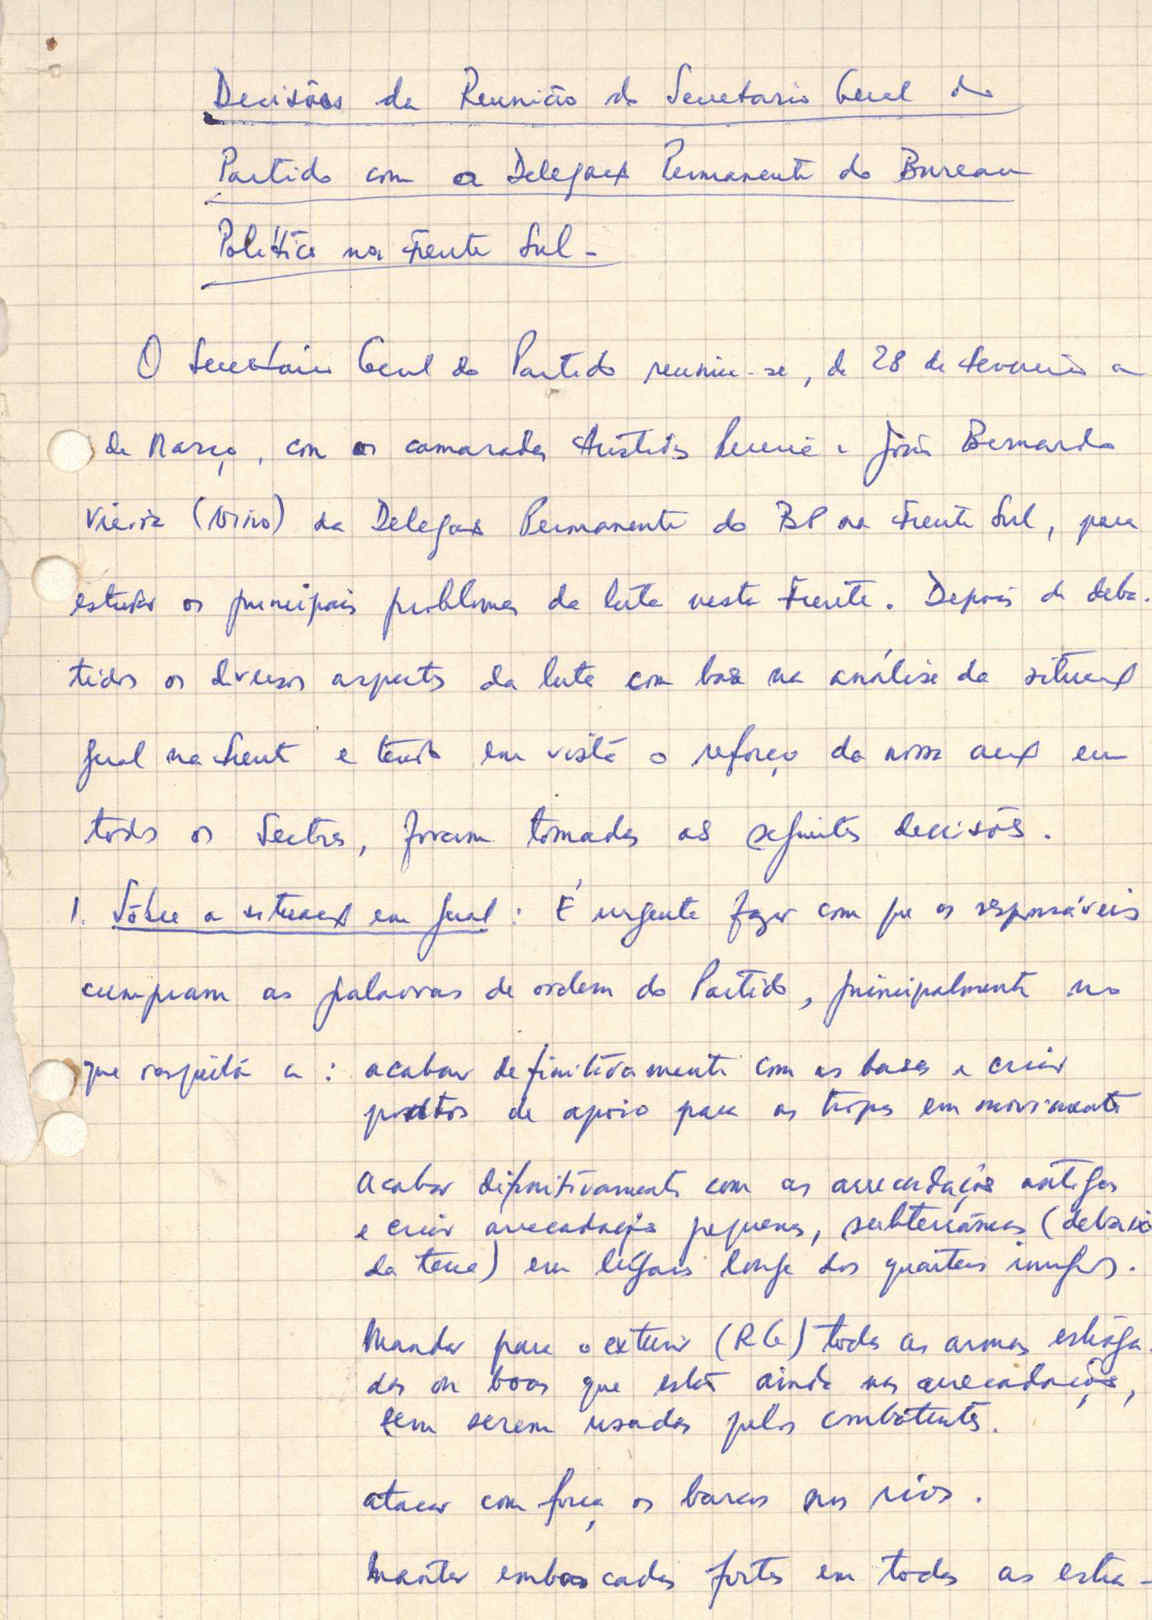 Decisões da Reunião do Secretario Geral do
Partido com a Delegação Permanente do Bureau
Político na Frente Sul -
O Secretário Geral do Partido reuniu-se, de 28 de Fevereiro a
de Março, com os camaradas Aristides Pereira e João Bernardo
Vieira (Nino) da Delegação Permanente do BP na Frente Sul, para
estudar os principais problemas da luta nesta Frente. Depois de deba-
tidos os diversos aspectos da luta com base na análise da situação
geral na frente e tendo em vista o reforço da nossa acção em
todos os Sectores, foram tomadas as seguintes decisões.
1. Sôbre a situação em geral : É urgente fazer com que os responsáveis
cumpram as palavras de ordem do Partido, principalmente no
que respeita a : acabar definitivamente com as bases e criar
pontos de apoio para as tropas em movimento
Acabar difinitivamente com as arrecadações antigas
e criar arrecadações pequenas, subterrâneas (debaixo
da terra) em lugares longe dos quarteis inimigos.
Mandar para o exterior (RG) todas as armas estraga-
das ou boas que estão ainda nas arrecadações,
sem serem usadas pelos combatentes.
atacar com força os barcos nos rios.
Manter emboscadas fortes em todas as estra-